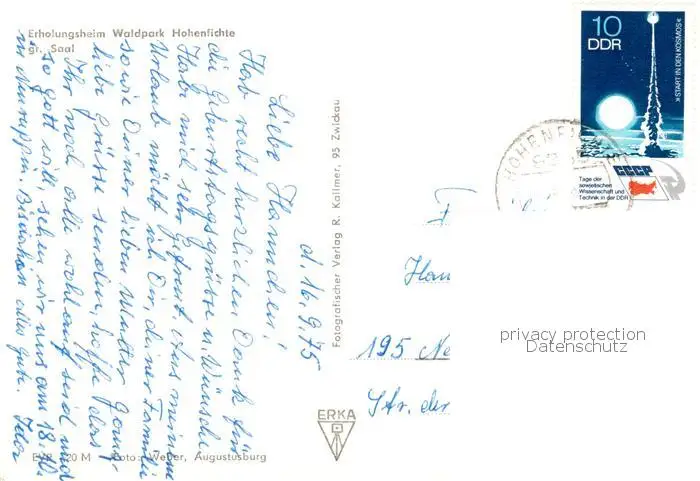 Erholungsheim Waldpark Hohenfichte
gr. Saal
d. 16.9.75
Liebe Hannchen!
Hab recht herzlichen Dank für
die Geburtstagsgrüße u. Wünsche
Habe mich sehr gefreut. Aus meinem
Urlaub möcht ich Dir, deiner Familie
sowie Deiner lieben Mutter ganz
liebe Grüsse senden, hoffe dass
Ihr noch alle wohlauf seid und
so Gott will, sehen wir uns am 18.10.
in Neuruppin. Bis dahin alles Gute.
EVP 20 M Foto: Weber, Augustusburg
Fotografischer Verlag R. Kallmer, 95 Zwickau
ERKA
10
DDR
»START IN DEN KOSMOS«
CCCP
Tage der
sowjetischen
Wissenschaft und
Technik in der DDR
F
Han
195 Ne
Str. der
privacy protection
Datenschutz